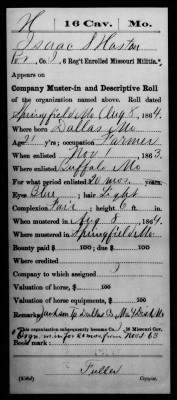 H 16 Cav. Mo.
Isaac S Haston
Pvt., Co. , 6 Reg't Enrolled Missouri Militia.*
Appears on
Company Muster-in and Descriptive Roll
of the organization named above. Roll dated
Springfield Mo Aug 8, 1864.
Where born Dallas Mo
Age 21 y'rs; occupation Farmer
When enlisted Nov 1, 1863.
Where enlisted Buffalo Mo
For what period enlisted 20 mos. years.
Eyes Blue; hair Light
Complexion Fair; height 6 ft. in.
When mustered in Aug 8, 1864.
Where mustered in Springfield Mo
Bounty paid $ 100; due $ 100
Where credited
Company to which assigned
Valuation of horse, $ 100
Valuation of horse equipments, $ 100
Remarks: Jackson Tp Dallas Co Mo
*This organization subsequently became Co. , 16 Missouri Cav.
Book mark:
Fuller
(356d) Copyist.